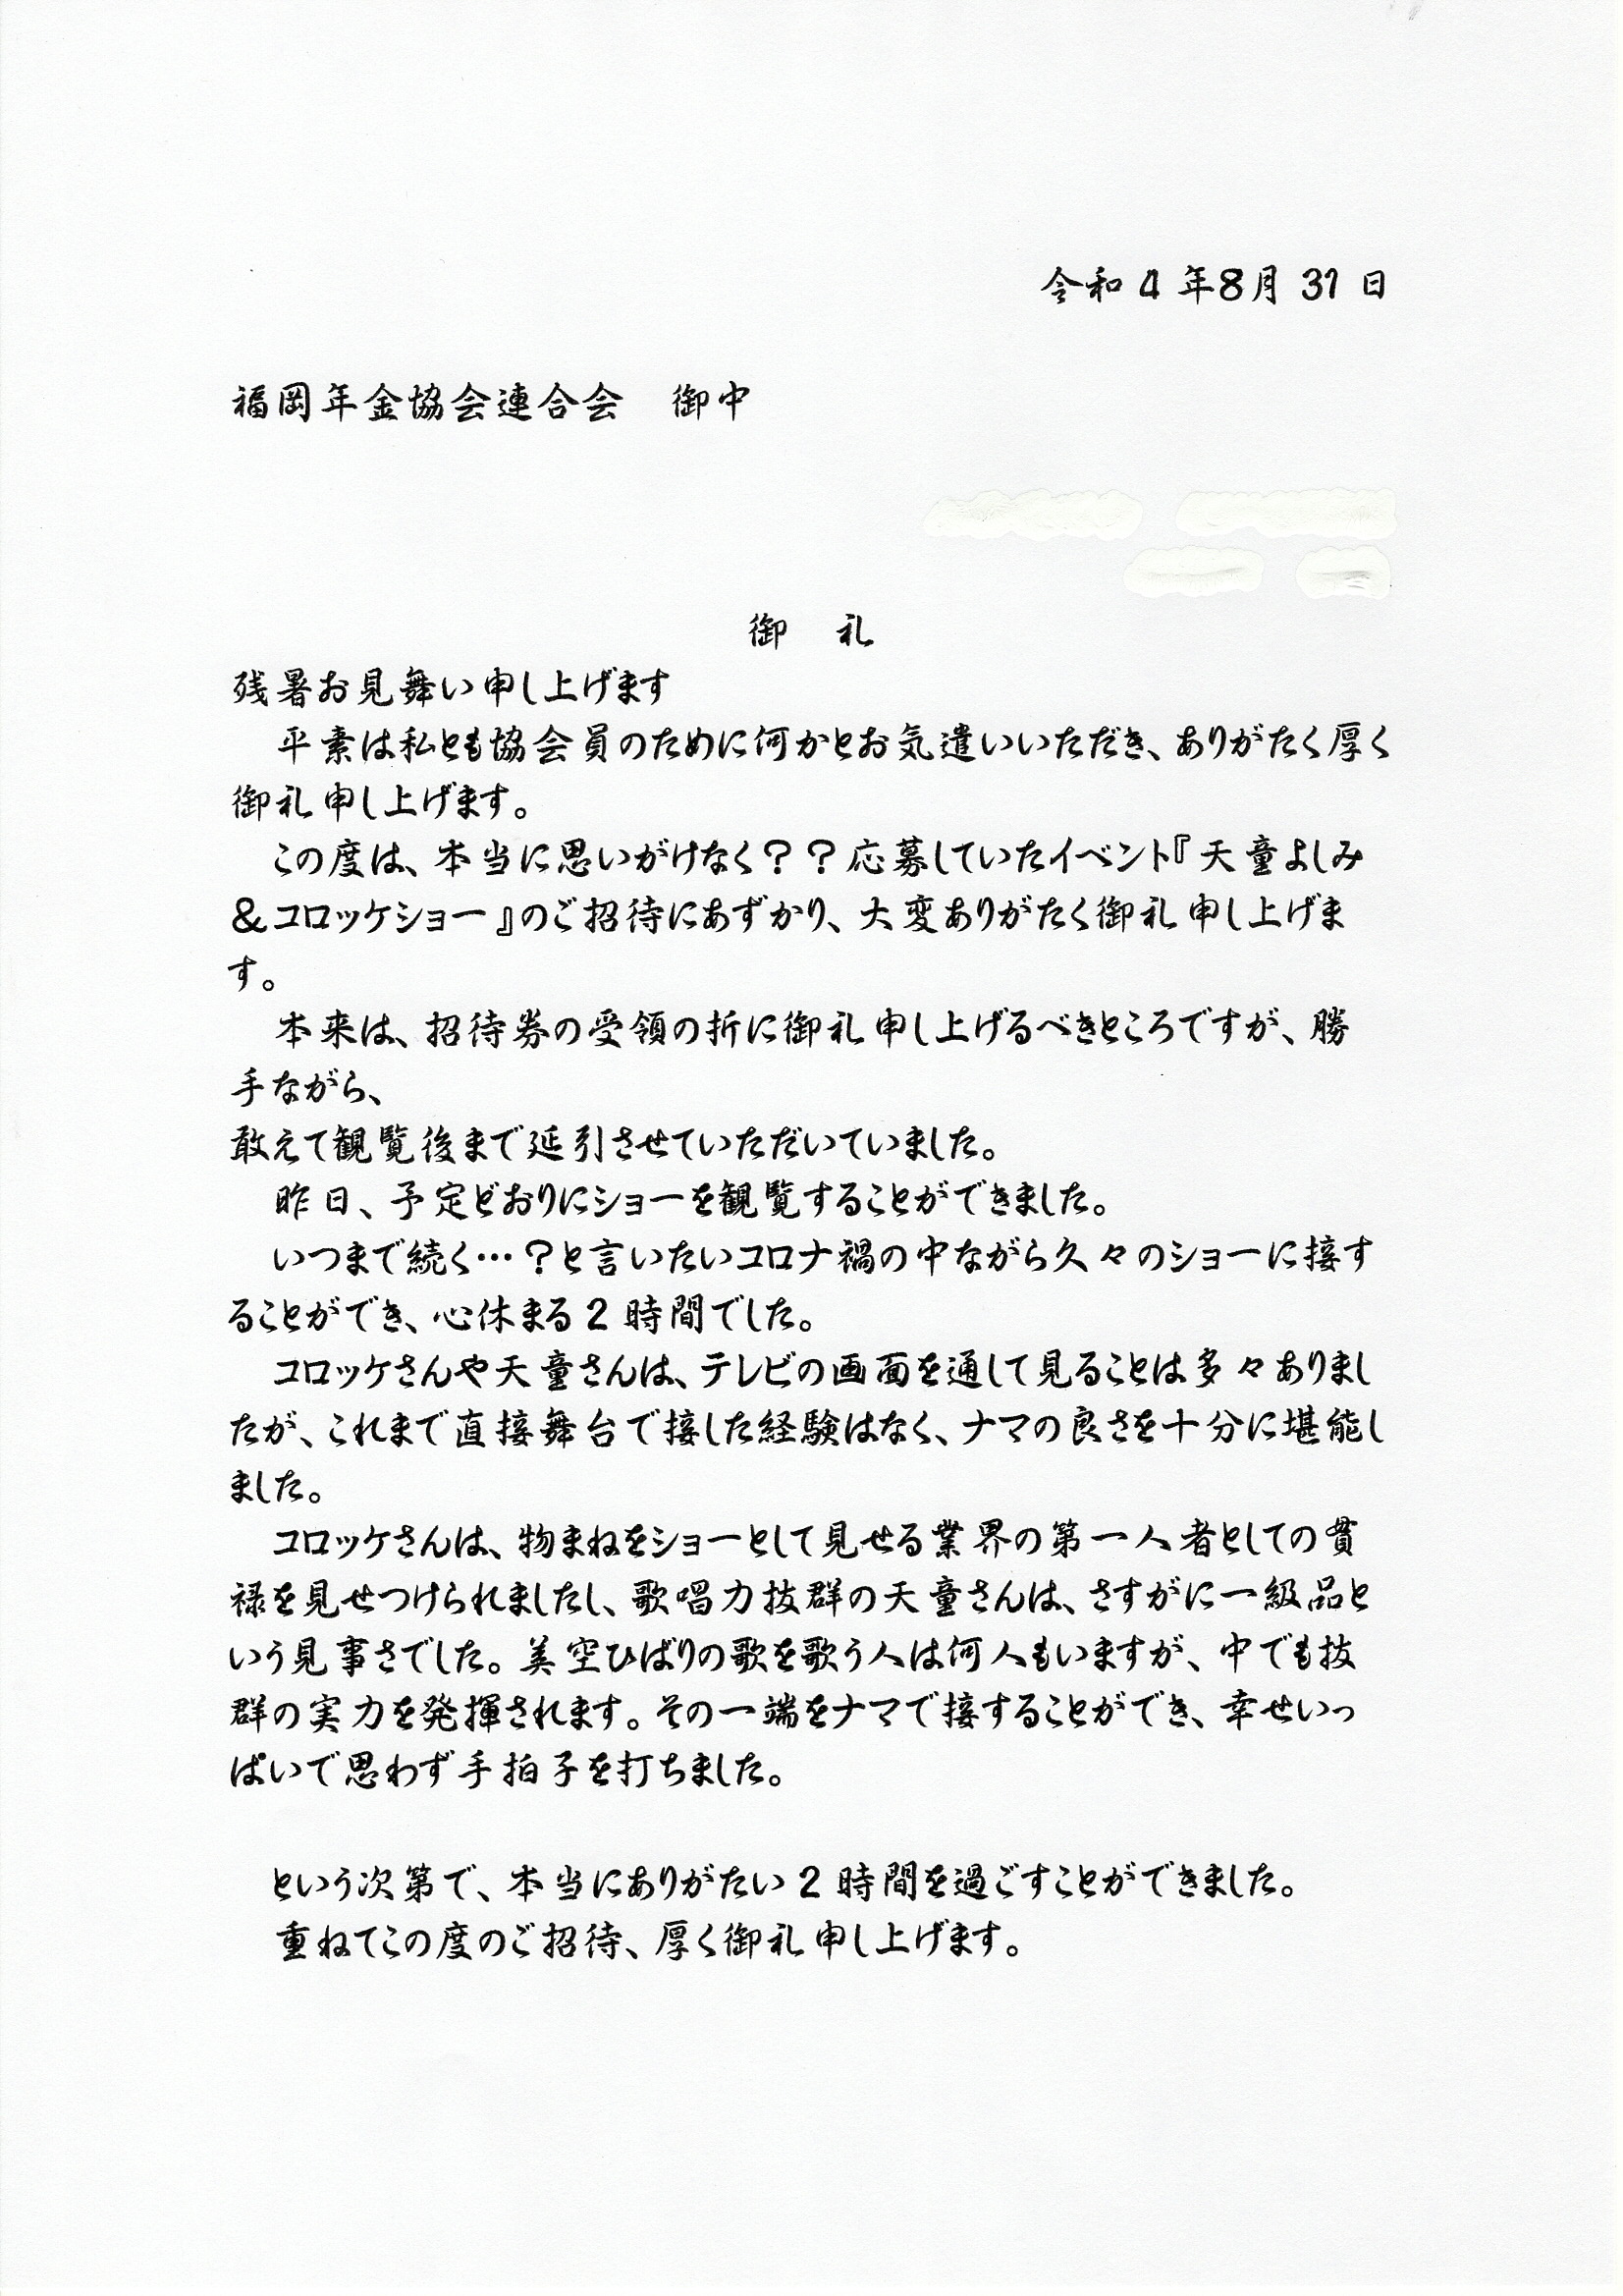 令和4年8月31日
福岡年金協会連合会　御中
御　礼
残暑お見舞い申し上げます
　平素は私とも協会員のために何かとお気遣いいただき、ありがたく厚く
御礼申し上げます。
　この度は、本当に思いがけなく？？応募していたイベント『天童よしみ
＆コロッケショー』のご招待にあずかり、大変ありがたく御礼申し上げま
す。
　本来は、招待券の受領の折に御礼申し上げるべきところですが、勝
手ながら、
敢えて観覧後まで延引させていただいていました。
　昨日、予定どおりにショーを観覧することができました。
　いつまで続く…？と言いたいコロナ禍の中ながら久々のショーに接す
ることができ、心休まる2時間でした。
　コロッケさんや天童さんは、テレビの画面を通して見ることは多々ありまし
たが、これまで直接舞台で接した経験はなく、ナマの良さを十分に堪能し
ました。
　コロッケさんは、物まねをショーとして見せる業界の第一人者としての貫
禄を見せつけられましたし、歌唱力抜群の天童さんは、さすがに一級品と
いう見事さでした。美空ひばりの歌を歌う人は何人もいますが、中でも抜
群の実力を発揮されます。その一端をナマで接することができ、幸せいっ
ぱいで思わず手拍子を打ちました。
　という次第で、本当にありがたい2時間を過ごすことができました。
　重ねてこの度のご招待、厚く御礼申し上げます。